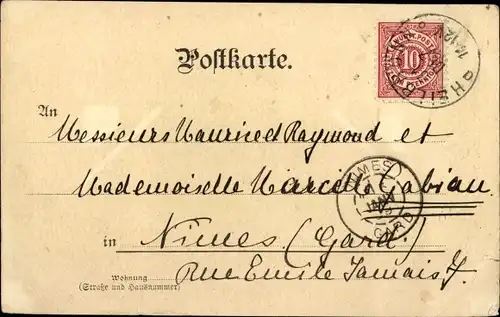 Postkarte.
10
HEILBRONN
An
Messieurs Maurice et Raymond et
Mademoiselle Marcelle Fabian
NIMES
GARD
in Nimes (Gard).
Wohnung
(Straße und Hausnummer)
Rue Emile Jamais 7.